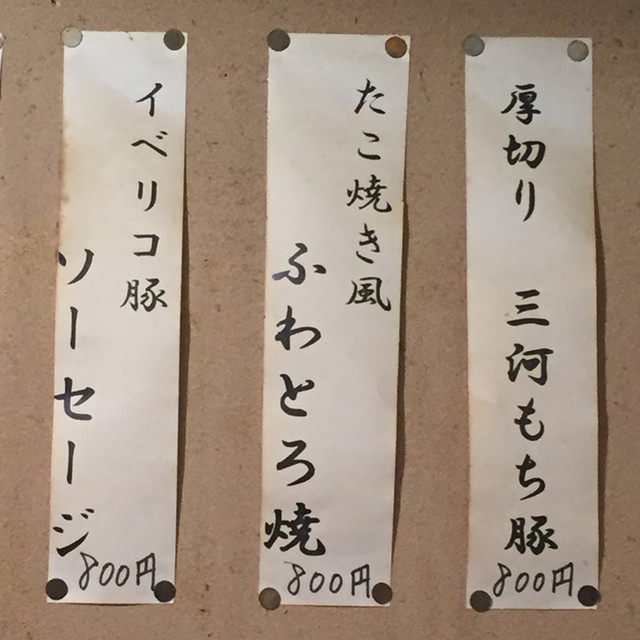 厚切り 三河もち豚
800円
たこ焼き風
ふわとろ焼
800円
イベリコ豚
ソーセージ
800円